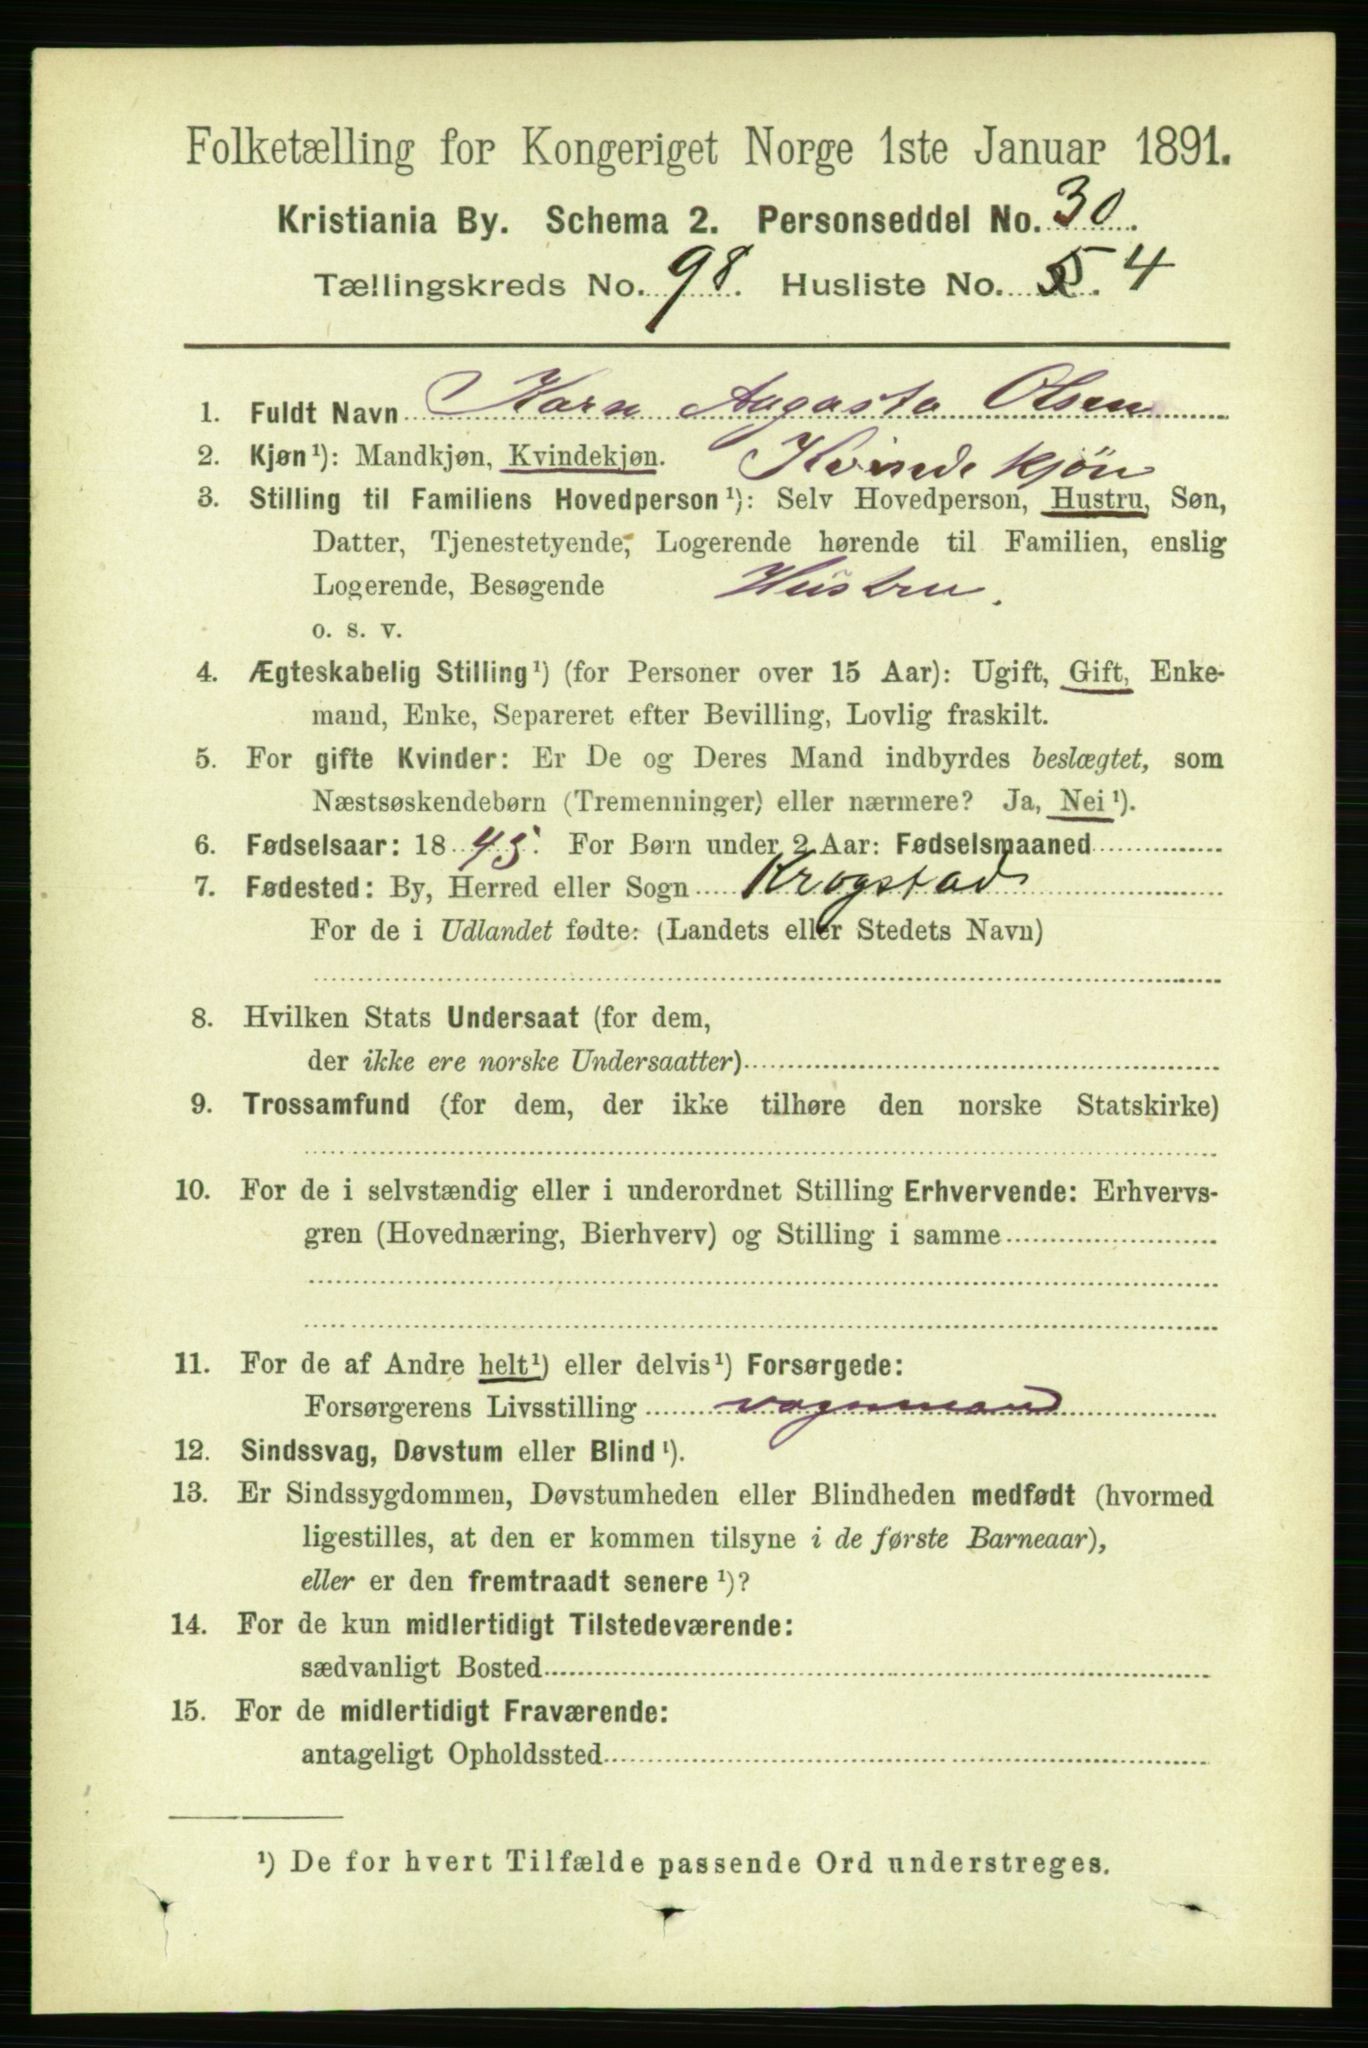 Folketælling for Kongeriget Norge 1ste Januar 1891.
Kristiania By. Schema 2. Personseddel No. 30.
Tællingskreds No. 98. Husliste No. 5. 4
1. Fuldt Navn Karn Augasta Olsen
2. Kjøn¹): Mandkjøn, Kvindekjøn. Kvindekjön
3. Stilling til Familiens Hovedperson¹): Selv Hovedperson, Hustru, Søn,
Datter, Tjenestetyende, Logerende hørende til Familien, enslig
Logerende, Besøgende Hustru.
o. s. v.
4. Ægteskabelig Stilling¹) (for Personer over 15 Aar): Ugift, Gift, Enke-
mand, Enke, Separeret efter Bevilling, Lovlig fraskilt.
5. For gifte Kvinder: Er De og Deres Mand indbyrdes beslægtet, som
Næstsøskendebørn (Tremenninger) eller nærmere? Ja, Nei¹).
6. Fødselsaar: 1845. For Børn under 2 Aar: Fødselsmaaned
7. Fødested: By, Herred eller Sogn Krogstad
For de i Udlandet fødte: (Landets eller Stedets Navn)
8. Hvilken Stats Undersaat (for dem,
der ikke ere norske Undersaatter)
9. Trossamfund (for dem, der ikke tilhøre den norske Statskirke)
10. For de i selvstændig eller i underordnet Stilling Erhvervende: Erhvervs-
gren (Hovednæring, Bierhverv) og Stilling i samme
11. For de af Andre helt¹) eller delvis¹) Forsørgede:
Forsørgerens Livsstilling vognmand
12. Sindssvag, Døvstum eller Blind¹).
13. Er Sindssygdommen, Døvstumheden eller Blindheden medfødt (hvormed
ligestilles, at den er kommen tilsyne i de første Barneaar),
eller er den fremtraadt senere¹)?
14. For de kun midlertidigt Tilstedeværende:
sædvanligt Bosted
15. For de midlertidigt Fraværende:
antageligt Opholdssted
¹) De for hvert Tilfælde passende Ord understreges.